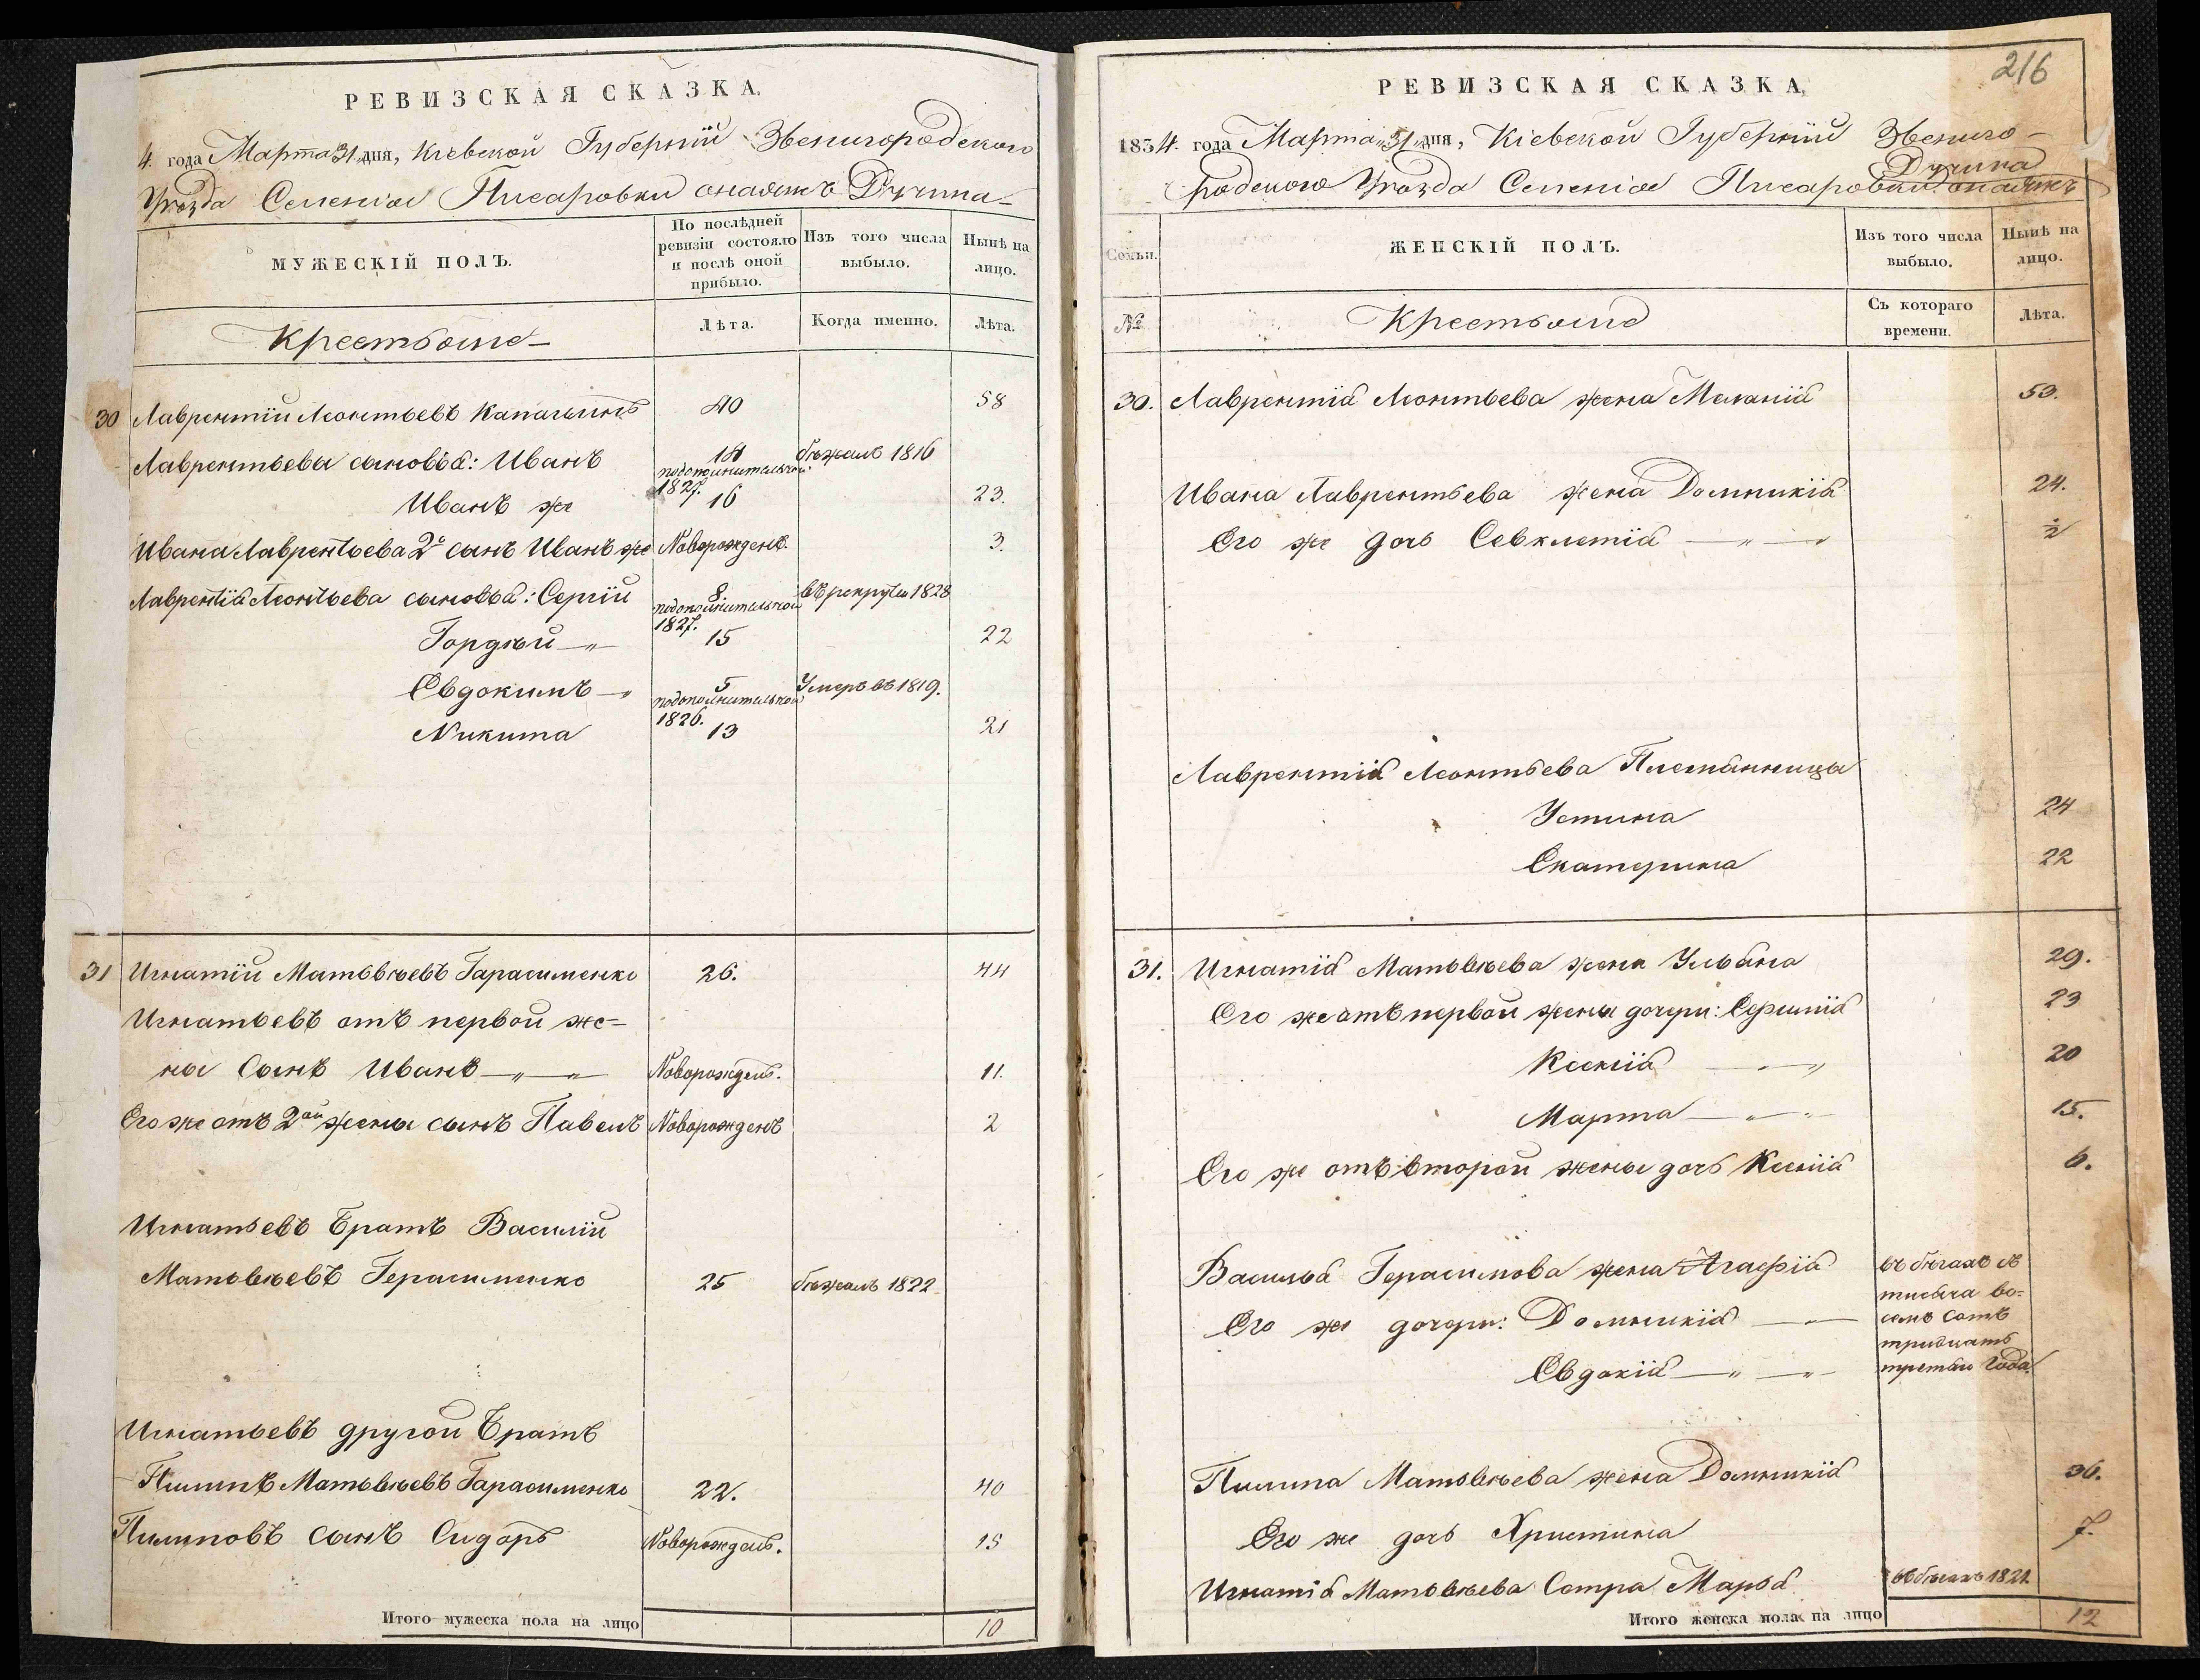 РЕВИЗСКАЯ СКАЗКА.
4. года Марта 31 дня, Кіевской Губерніи Звенигородского
Уѣзда Селенія Писаровки
МУЖЕСКІЙ ПОЛЪ.
По послѣдней ревизіи состояло и послѣ оной прибыло.
Изъ того числа выбыло.
Нынѣ на лицо.
Крестьяне
Лѣта.
Когда именно.
Лѣта.
30 Лаврентій Леонтьевъ 40 58
Лаврентьевы сыновья: Иванъ 18 бѣжалъ 1816
по дополнительной
1827.
Иванъ же 16 23.
Ивана Лаврентьева 2й сынъ Иванъ же Новорожденъ. 3.
Лаврентія Леонтьева сыновья: Сергій 8. въ рекруты 1828
по дополнительной
1827.
Гордѣй 15 22
Евдокимъ 5 Умеръ въ 1819.
по дополнительной
1826.
Никита 13 21
31 Игнатій Матвѣевъ Гарасименко 26. 44
Игнатьевъ отъ первой же=
ны Сынъ Иванъ Новорожденъ. 11.
Его же отъ 2ой жены сынъ Павелъ Новорожденъ 2
Игнатьевъ братъ Василій
Матвѣевъ Герасименко 25 бѣжалъ 1822
Игнатьевъ другой братъ
Пилипъ Матвѣевъ Гарасименко 22. 40
Пилиповъ сынъ Сидоръ Новорожденъ. 15
Итого мужеска пола на лицо 10
216
РЕВИЗСКАЯ СКАЗКА,
1834. года Марта „31„ дня, Кіевской Губерніи Звениго-
родского Уѣзда Селенія Писаровки
Семьи.
ЖЕНСКІЙ ПОЛЪ.
Изъ того числа выбыло.
Нынѣ на лицо.
№
Крестьяне
Съ котораго времени.
Лѣта.
30. Лаврентія Леонтьева жена Меланія 53.
Ивана Лаврентьева жена Домникія 24.
Его же дочь Севклетія ½
Лаврентія Леонтьева Племянницы
Устина 24
Екатерина 22
31. Игнатія Матвѣева жена Ульяна 29.
Его же отъ первой жены дочери: Ефимія 23
Ксенія 20
Марта 15.
Его же отъ второй жены дочь Ксенія 6.
Василья Герасимова жена Агафія въ бѣгахъ съ
тысяча во=
Его же дочери: Домникія семь сотъ
тридцать
Евдокія третьяго года
Пилипа Матвѣева жена Домникія 36.
Его же дочь Христина 7.
Игнатія Матвѣева Сестра Марья въ бѣгахъ
Итого женска пола на лицо 12